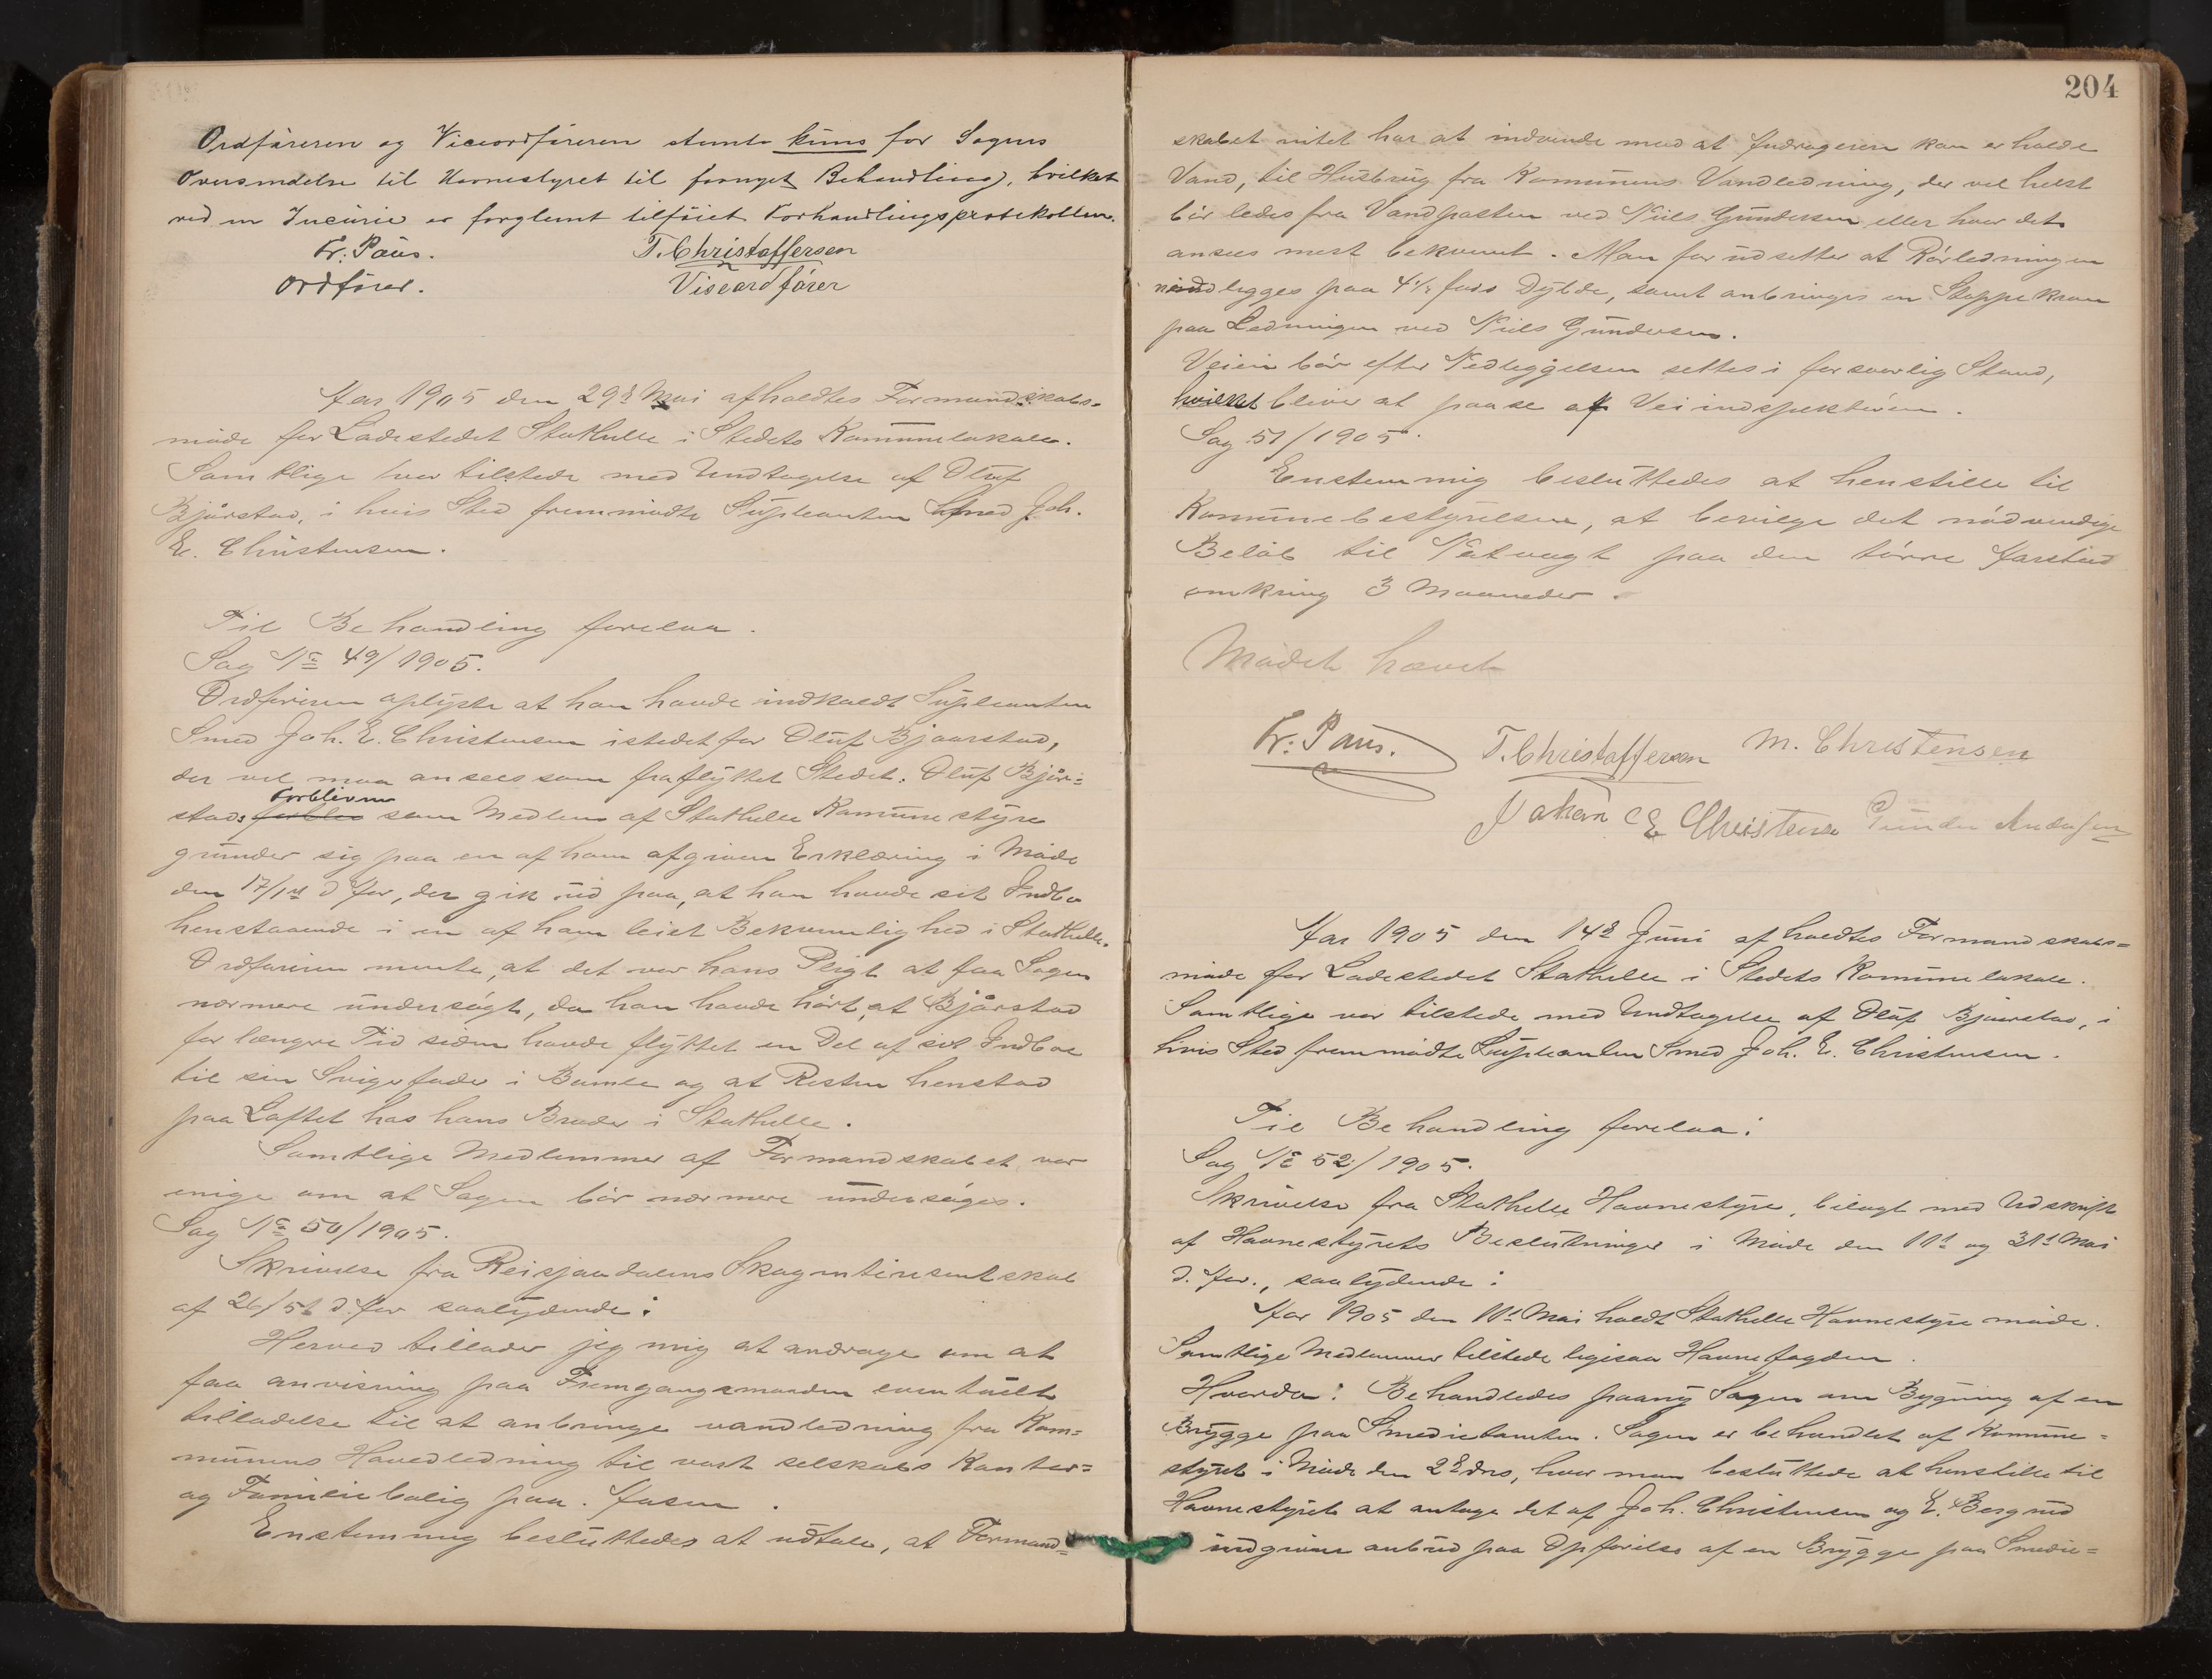 Ordføreren og Viceordføreren stemte kuns for Sagens
Oversendelse til Havnestyret til fornyet Behandling, hvilket
ved en Incurie er forglemt tilføiet Forhandlingsprotokollen.
Fr. Paus. T. Christoffersen
Ordfører. Viseordfører
Aar 1905 den 29d Mai afholdtes Formandskabs-
møde for Ladestedet Stathelle i Stedets Kommunelokale.
Samtlige var tilstede med Undtagelse af Oluf
Bjørstad, i hvis Sted fremmødte Supleanten Smed Joh.
E. Christensen.
Til Behandling forelaa.
Sag No 49/1905.
Ordføreren oplyste at han havde indkaldt Supleanten
Smed Joh. E. Christensen istedetfor Oluf Bjaarstad,
der vel maa ansees som fraflyttet Stedet. Oluf Bjør-
Forbliven
stads forblev som Medlem af Stathelle Kommunestyre
grunder sig paa en af ham afgiven Erklæring i Møde
den 17/1 d Aar, der gik ud paa, at han havde sit Indbo
henstaaende i en af ham leiet Bekvemlighed i Stathelle.
Ordføreren mente, at det var hans Pligt at faa Sagen
nærmere undersøgt, da han havde hørt, at Bjørstad
for længre Tid siden havde flyttet en Del af sit Indboe
til sin Svigerfader i Bamle og at Resten henstod
paa Loftet hos hans Broder i Stathelle.
Samtlige Medlemmer af Formandskabet var
enige om at Sagen bør nærmere undersøges.
Sag No 50/1905.
Skrivelse fra
af 26/5 d. Aar saalydende:
Herved tillader jeg mig at andrage om at
faa anvisning paa Fremgangsmaaden eventuelt
tilladelse til at anbringe vandledning fra Kom-
munens Hovedledning til vort selskabs Kontor-
og Familiebolig paa. Aasen.
Enstemmig besluttedes at udtale, at Formand-
204
skabet intet har at indvende mod at Andrageren kan erholde
Vand, til Husbrug fra Komunens Vandledning, der vel helst
bør ledes fra Vandposten ved Niels Gundersen eller hvor det
ansees mest bekvemt. Man forudsetter at Rørledningen
nedlegges paa 4½ fods Dybde, samt anbringes en Stoppekran
paa Ledningen ved Niels Gundersen.
Veien bør efter Nedleggelsen settes i forsvarlig Stand,
hvilket bliver at paase af Veiindspektøren.
Sag 51/1905.
Enstemmig besluttedes at henstille til
Komunebestyrelsen, at bevilge det nødvendige
Beløb til Natvagt paa den tørre Aarstid
omkring 3 Maaneder.
Mødet hævet
Fr. Paus. T. Christoffersen M. Christensen
Johan E Christensen Gunder Andersen
Aar 1905 den 14d Juni afholdtes Formandskabs-
møde for Ladestedet Stathelle i Stedets Komunelokale.
Samtlige var tilstede med Undtagelse af Oluf Bjaarstad, i
hvis Sted fremmødte Supleanten Smed Joh. E. Christensen.
Til Behandling forelaa:
Sag No 52/1905.
Skrivelse fra Stathelle Havnestyre, bilagt med Udskrift
af Havnestyrets Beslutninger i Møde den 11t og 31t Mai
d. Aar., saalydende:
Aar 1905 den 11t Mai holdt Stathelle Havnestyre møde.
Samtlige Medlemmer tilstede ligesaa Havnefogden.
Hvorda: Behandledes paany Sagen om Bygning af en
Brygge paa Smedietomten. Sagen er behandlet af Komune-
styret i Møde den 2d ds, hvor man besluttede at henstille til
Havnestyret at antage det af Joh. Christensen og E. Berg
indgivne anbud paa Opførelse af en Brygge paa Smedie-